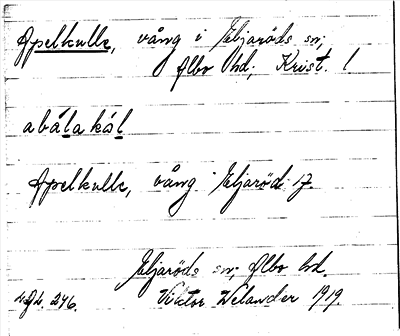 Apelkulle, vång i Eljaröds sn;
Albo hd; Krist. l
abálakól
Apelkulle, vång Eljaröd 17.
Eljaröds sn; Albo hd.
246. Viktor Welander 1919.